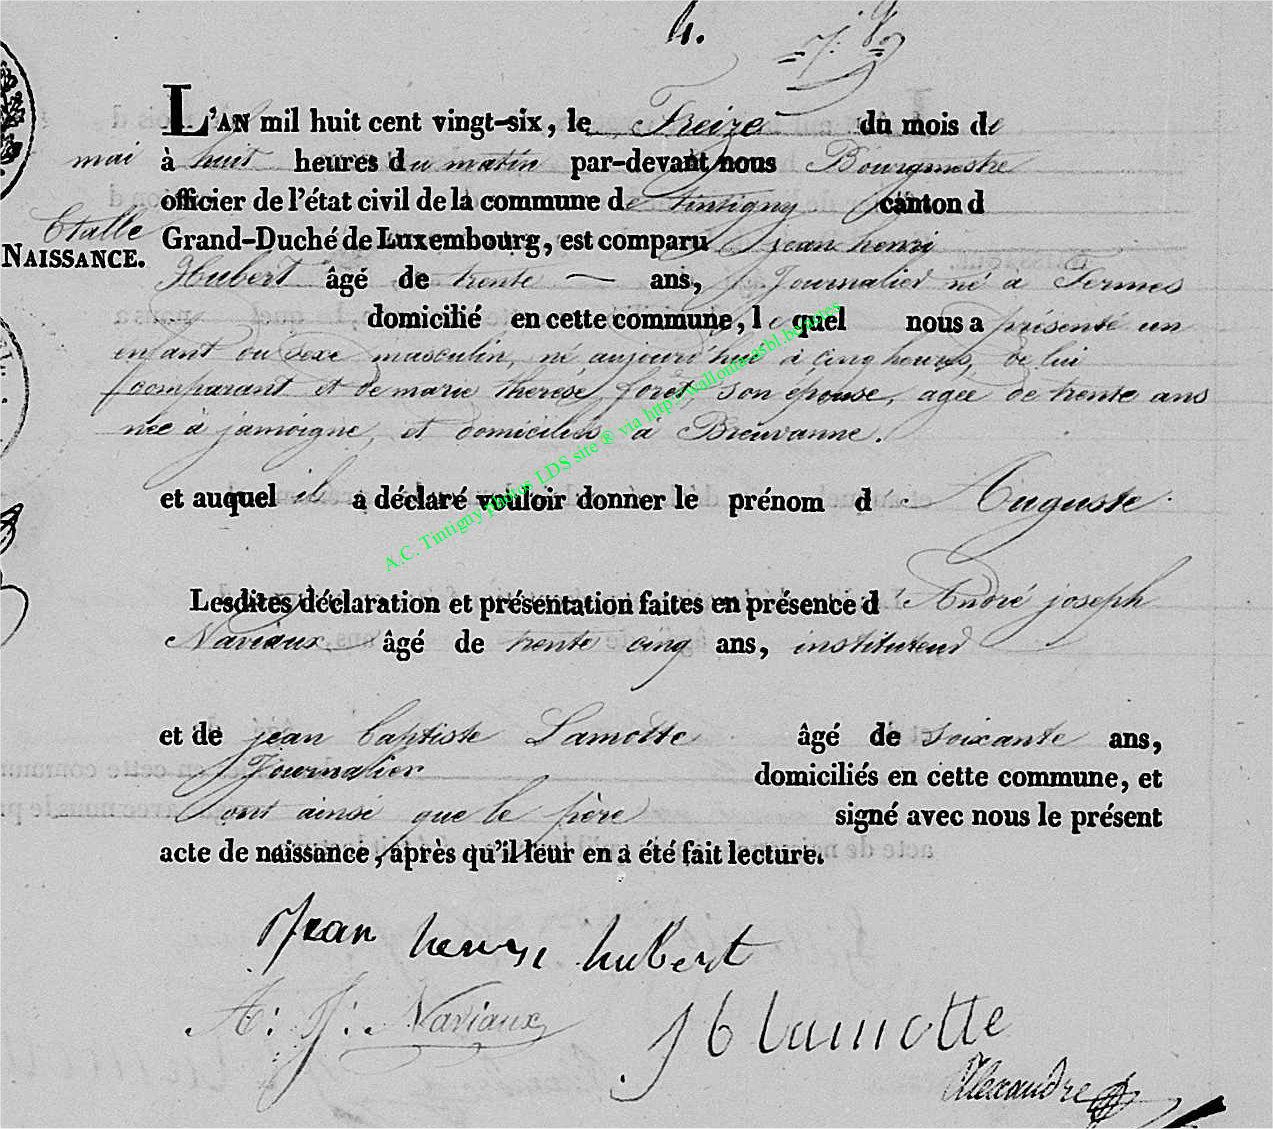 4.
L'AN mil huit cent vingt-six, le Treize du mois de
mai à huit heures du matin par-devant nous Bourgmestre
officier de l'état civil de la commune de tintigny canton d
Etalle Grand-Duché de Luxembourg, est comparu jean henri
NAISSANCE.
Hubert âgé de trente ans, Journalier né a Termes
domicilié en cette commune, lequel nous a présenté un
enfant du sexe masculin, né aujourd'hui à cinq heures, de lui
comparant et de marie therése forêt, son épouse, agée de trente ans
née à jamoigne, et domiciliés à Breuvanne.
et auquel il a déclaré vouloir donner le prénom d Auguste
Lesdites déclaration et présentation faites en présence d'André joseph
Naviaux âgé de trente cinq ans, instituteur
et de jean baptiste Lamotte âgé de soixante ans,
Journalier domiciliés en cette commune, et
ont ainsi que le père signé avec nous le présent
acte de naissance, après qu'il leur en a été fait lecture.
Jean henri hubert
A: J: Naviaux
J b lamotte
Alexandre
A.C. Tintigny photos LDS site ® via http://wallonia-asbl.be/actes